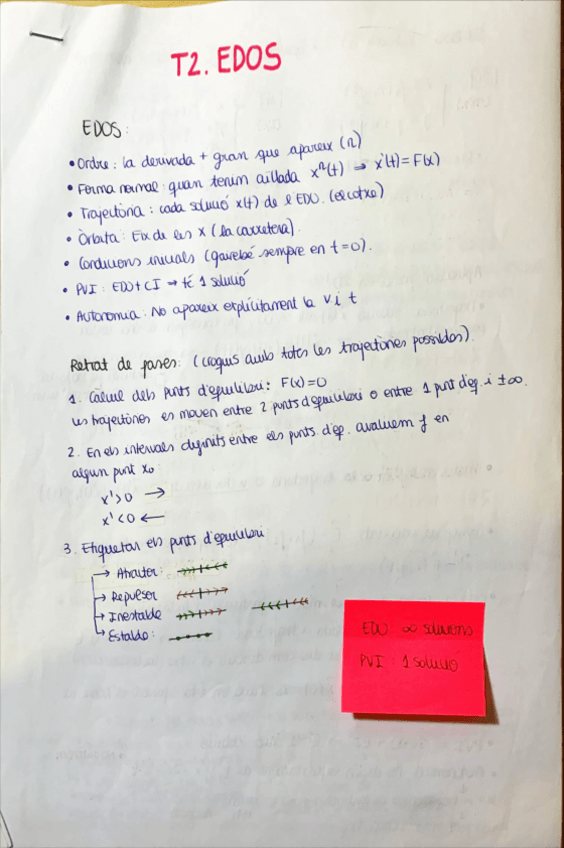 T2. EDOS
EDOS:
• Ordre: la derivada + gran que apareix (n)
• Forma normal: quan tenim aïllada xⁿ(t) → x'(t) = F(x)
• Trajectòria: cada solució x(t) de l'EDO. (el cotxe)
• Òrbita: Eix de les x (la carretera).
• Condicions inicials (gairebé sempre en t=0).
• PVI: EDO + CI → té 1 solució
• Autònoma: No apareix explícitament la v i t
Retrat de fases: (croquis amb totes les trajectòries possibles).
1. Càlcul dels punts d'equilibri: F(x)=0
Les trajectòries es mouen entre 2 punts d'equilibri o entre 1 punt d'eq. i ±∞.
2. En els intervals definits entre els punts d'eq. avaluem f en
algun punt x₀:
x'>0 →
x'<0 ←
3. Etiquetar els punts d'equilibri
→ Atractor:
→ Repulsor
→ Inestable
→ Estable:
EDO ∞ solucions
PVI: 1 solució